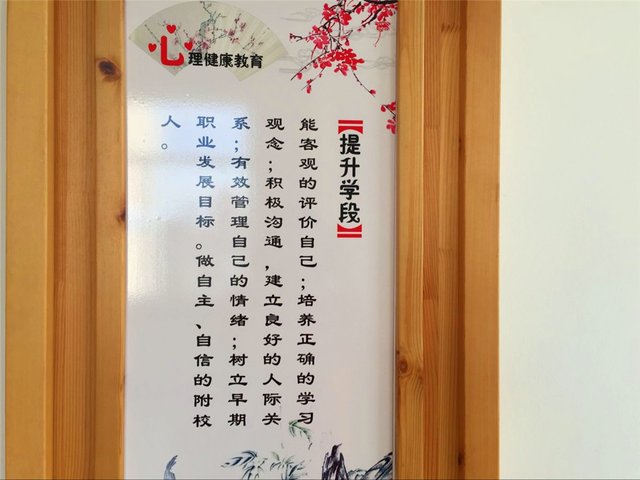 心理健康教育
【提升学段】
能客观的评价自己；培养正确的学习
观念；积极沟通，建立良好的人际关
系；有效管理自己的情绪；树立早期
职业发展目标。做自主、自信的附校
人。